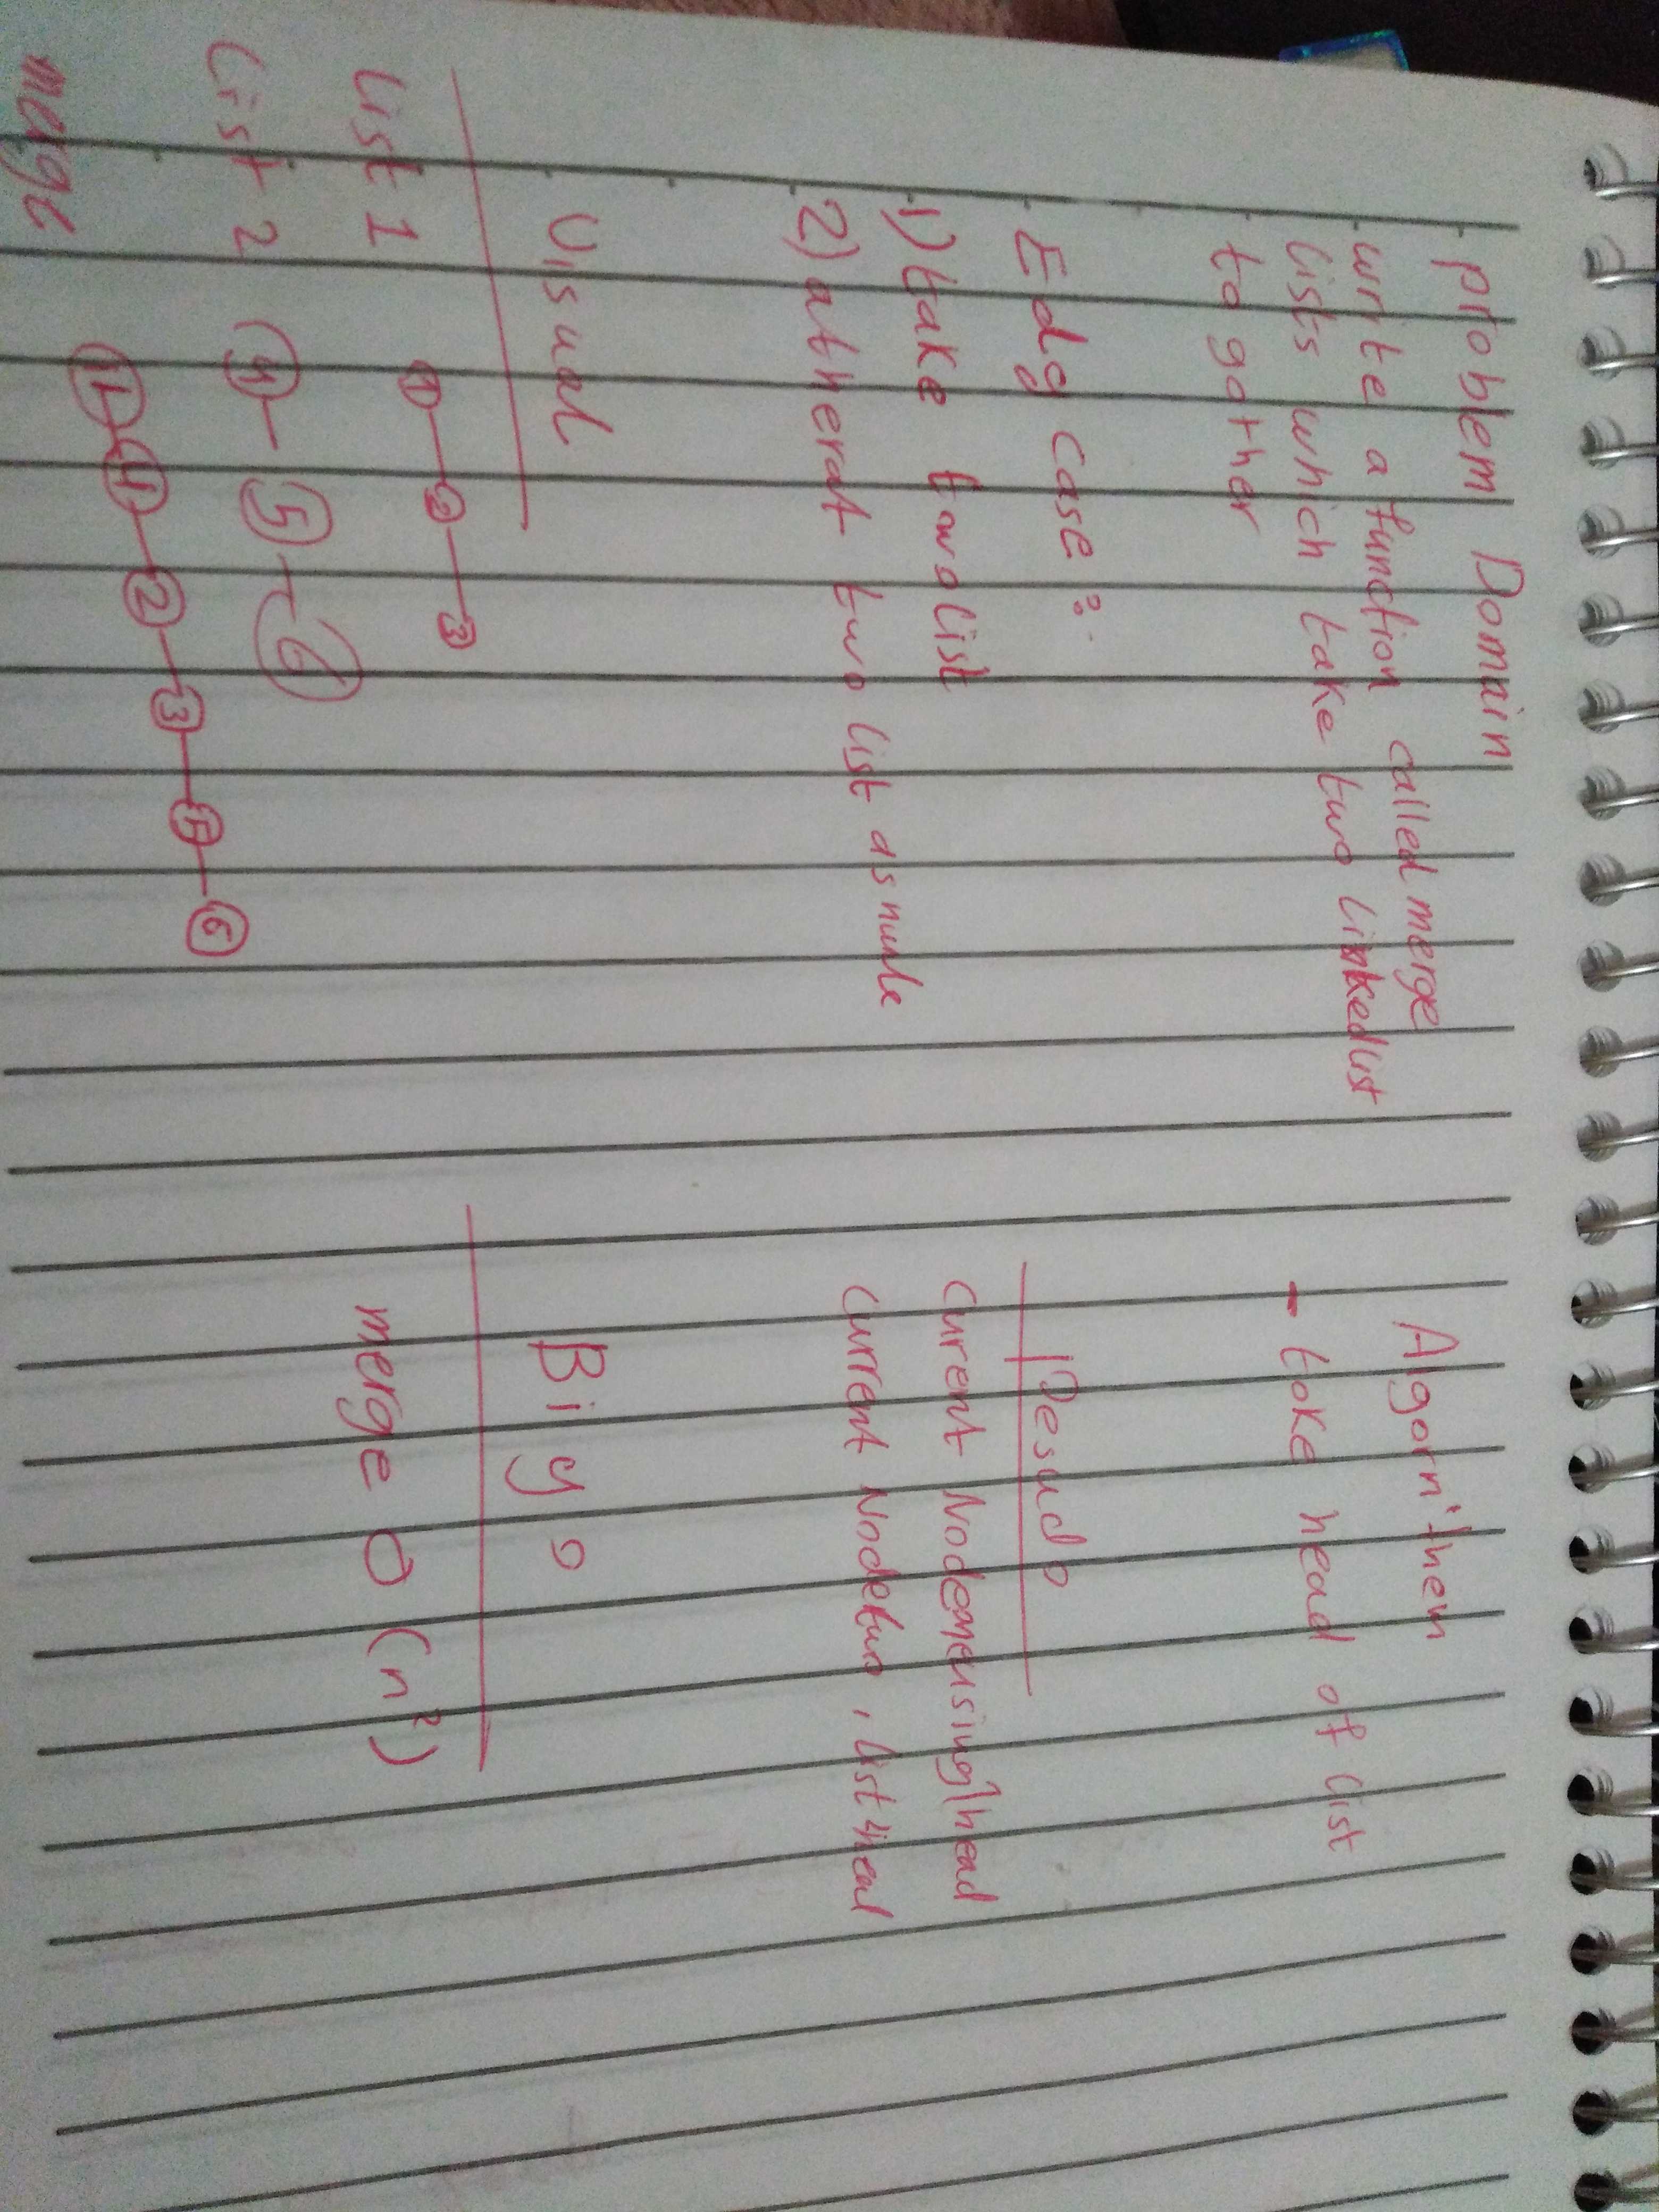 problem Domain
write a function called merge
Lists which take two Linkedlist
to gother
Edg case :
1) take two list
2) at herat two list as nule
Visual
List 1
1 2 3
List 2
4 5 6
merge
1 4 2 3 5 6
Algorithem
- take head of list
Desudo
current Node head
current Nodetwo , list head
Big o
merge O (n²)